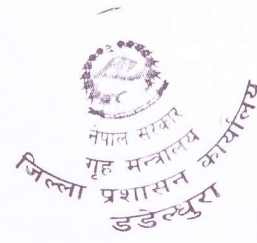 नेपाल सरकार
गृह मन्त्रालय
जिल्ला प्रशासन कार्यालय
डडेल्धुरा